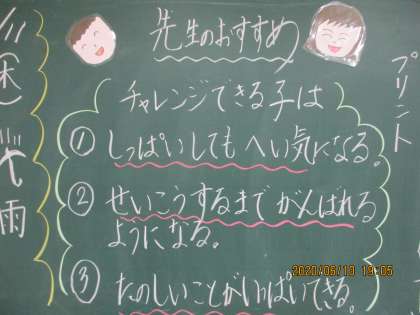 先生のおすすめ
チャレンジできる子は
① しっぱいしても へい気になる。
② せいこうするまで がんばれる
ようになる。
③ たのしいことがいっぱいできる。
プリント
(木)
雨
2020/06/10 19:05